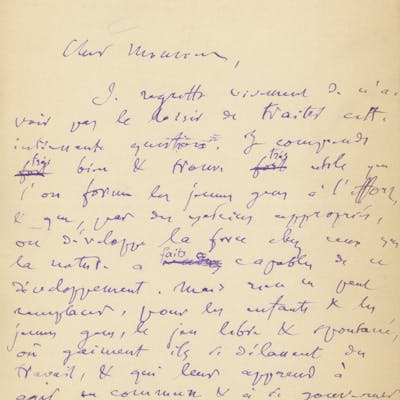 Cher Monsieur,
Je regrette vivement de n'a-
voir pas le loisir de traiter cette
intéressante question. Je comprends
très
fort bien & trouve très
fort utile que
l'on forme les jeunes gens à l'effort,
& que, par des exercices appropriés,
on développe la force chez ceux que
la nature a faits capables de ce
développement. Mais rien ne peut
remplacer, pour les enfants & les
jeunes gens, le jeu libre & spontané,
où gaiment ils se délassent du
travail, & qui leur apprend à
agir en commun & à se gouverner